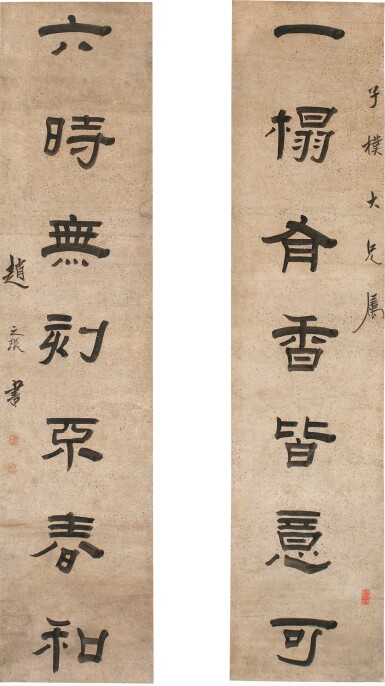 子樸大兄属
一榻有香皆意可
六時無刻不春和
趙之琛書